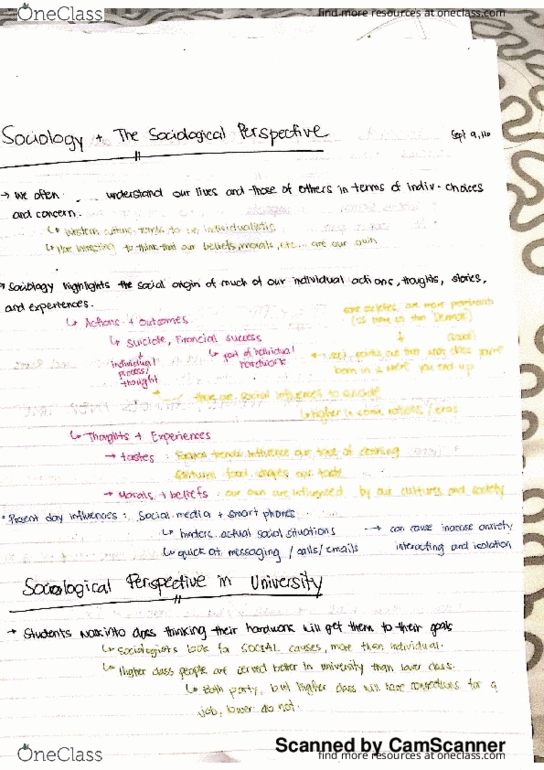 OneClass
find more resources at oneclass.com
Sociology + The Sociological Perspective
Sept 9, 16
→ We often ... understand our lives and those of others in terms of indiv. choices
and concern.
↳ Western culture tends to be individualistic
↳ to think that our beliefs, morals, etc... are our own
Sociology highlights the social origin of much of our individual actions, thoughts, stories,
and experiences.
↳ Actions + outcomes
↳ Suicide, Financial success
individual process/thought
↳ part of individual hardwork
born in is where you end up
→ there are social influences to suicide
↳ higher in some nations/eras
↳ Thoughts + Experiences
→ tastes : trends influence our type of clothing
food shapes our taste
→ Morals + beliefs : our own are influenced by our cultures and society
• Present day influences : Social media + smart phones
↳ hinders actual social situations → can cause increase anxiety
↳ quick at messaging / calls / emails interacting and isolation
Sociological Perspective in University
→ Students walk into class thinking their hardwork will get them to their goals
↳ Sociologists look for SOCIAL causes, more than individual.
↳ Higher class people are served better in university than lower class.
↳ Both party, but higher class will have connections for a
job, lower do not.
Scanned by CamScanner
OneClass
find more resources at oneclass.com